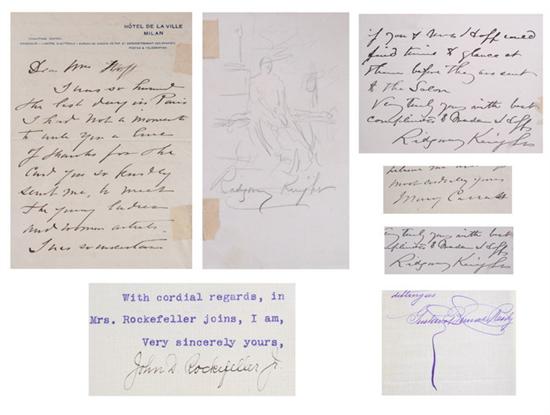 HÔTEL DE LA VILLE
MILAN
Dear Mrs Hoff
I was so hurried
the last days in Paris
I had not a moment
to write you a line
of thanks for the
Card you so kindly
sent me, to meet
the young ladies
and women artists.
I was
Ridgway Knight
if you & Mrs Hoff could
find time to glance at
them before they are sent
to the Salon
Very truly yours with best
compliments to Madame Hoff
Ridgway Knight
most cordially yours
Mary Cassatt
truly yours with best
compliments to Madame Hoff
Ridgway Knight
With cordial regards, in
Mrs. Rockefeller joins, I am,
Very sincerely yours,
John D. Rockefeller Jr.